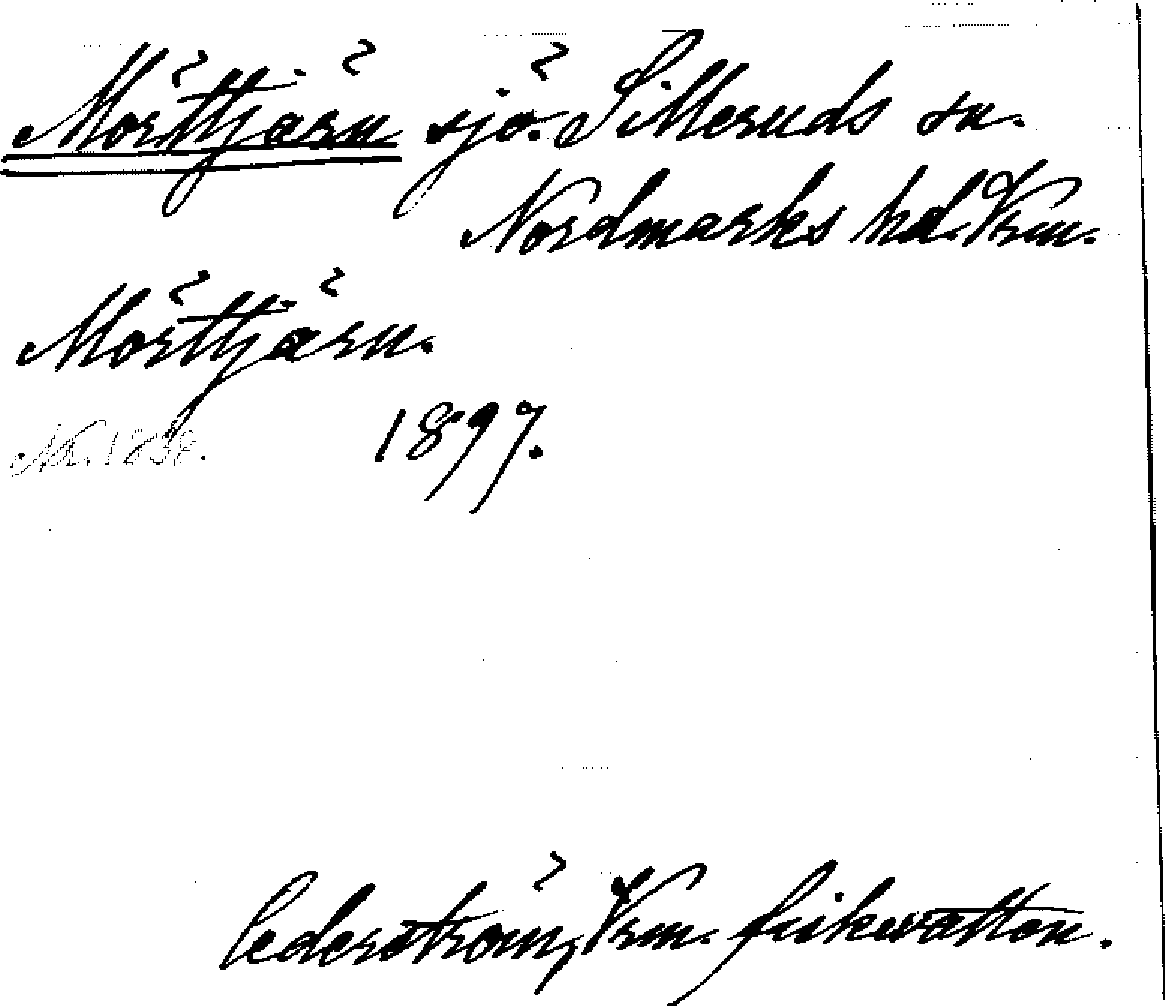 Mörttjärn sjö. Silleruds sn.
Nordmarks hd. Vrm.
Mörttjärn.
1897.
Cederström, Vrm. fiskevatten.